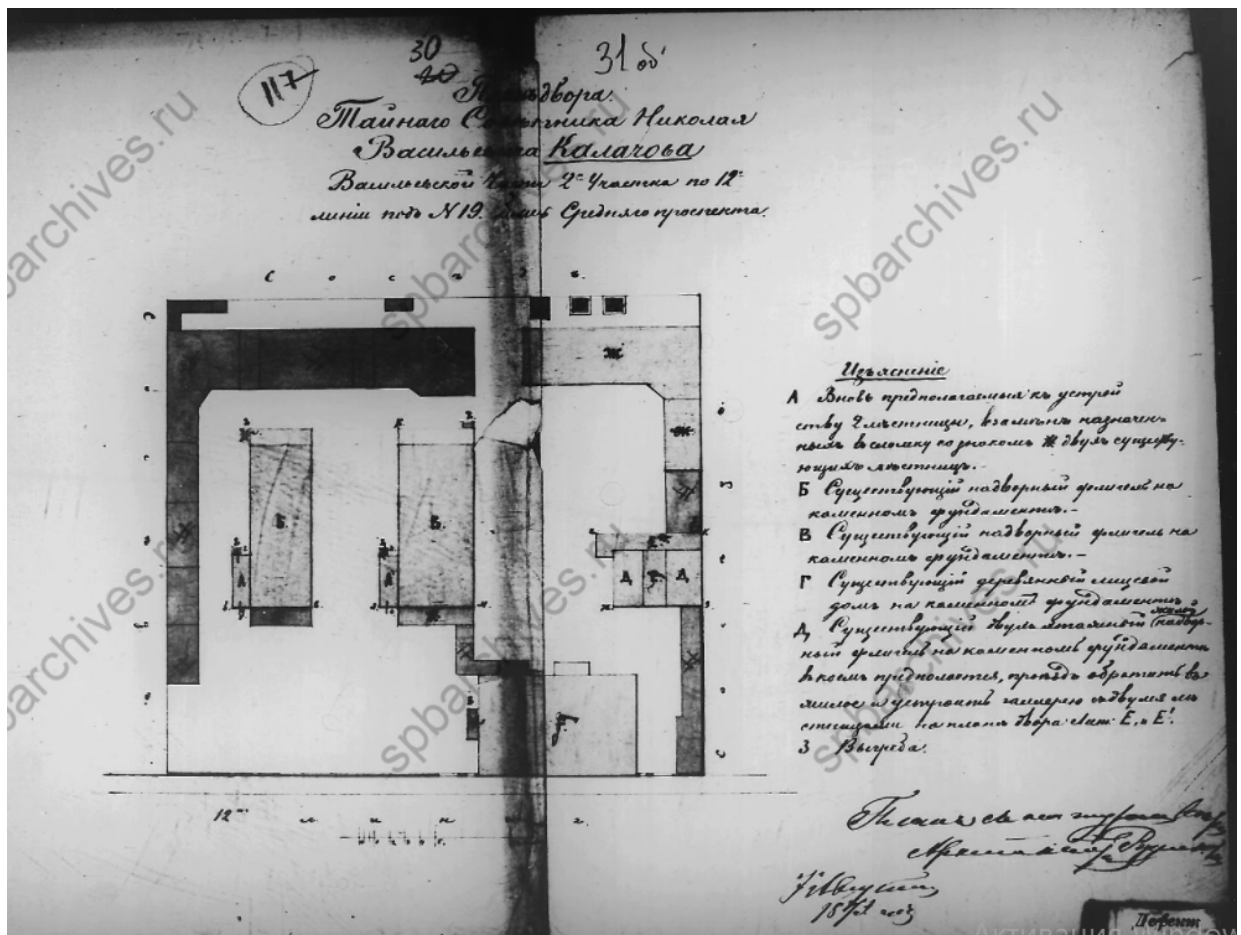 30
117
31 об
двора
Тайнаго Советника Николая
Васильевича Калачова
Васильевской Части 2го Участка по 12й
линіи подъ N 19. близь Средняго проспекта.
С о с
Ж
Ж
Б
В
А
А
Д Г Д
Г
12 л и н
Изъясненіе
А Вновь предполагаемыя къ устрой
ству 2 лѣстницы, взамѣнъ назначен-
ныхъ въ сломку со знакомъ Ж двухъ существу-
ющихъ лѣстницъ.-
Б Существующій надворный флигель на
каменномъ фундаментѣ.-
В Существующій надворный флигель на
каменномъ фундаментѣ.-
Г Существующій деревянный лицевой
домъ на каменномъ фундаментѣ
Д Существующій двухъэтажный жилой надвор-
ный флигель на каменномъ фундаментѣ
въ коемъ предполается, проѣздъ обратить въ
жилое и устроить галлерею съ двумя лѣ
стницами на планѣ двора лит. Е, и Е'.
З Выгреба.
Архитекторъ
Августа
18 годъ
spbarchives.ru
spbarchives.ru
spbarchives.ru
spbarchives.ru
spbarchives.ru
spbarchives.ru